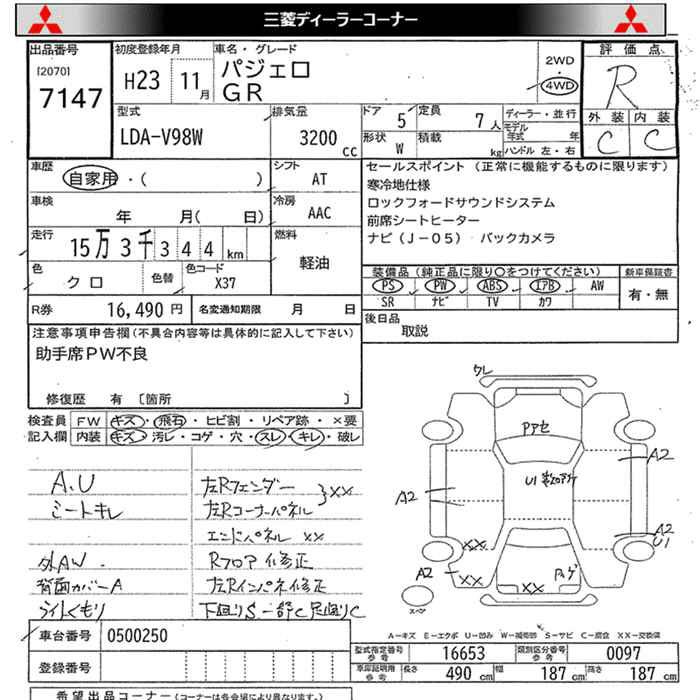 三菱ディーラーコーナー
出品番号
[2070]
7147
初度登録年月
H23 11月
車名・グレード
パジェロ
GR
2WD
・
4WD
評価点
R
外装 内装
C C
型式
LDA-V98W
排気量
3200 cc
ドア 5
定員 7人
形状 W
積載 kg
ディーラー・並行
モデル年式 年
ハンドル 左・右
車歴
自家用・( )
シフト
AT
車検
年 月( 日)
冷房
AAC
走行
15万3千344km
燃料
軽油
色
クロ
色替
色コード
X37
R券 16,490円
名変通知期限 月 日
セールスポイント (正常に機能するものに限ります)
寒冷地仕様
ロックフォードサウンドシステム
前席シートヒーター
ナビ(J-05) バックカメラ
装備品(純正品に限り○をつけてください)
新車保証書
PS PW ABS エアB AW
SR ナビ TV カワ
有・無
後日品
取説
注意事項申告欄(不具合内容等は具体的に記入して下さい)
助手席PW不良
修復歴 有 [箇所 ]
検査員記入欄
FW キズ・飛石・ヒビ割・リペア跡・×要
内装 キズ・汚レ・コゲ・穴・スレ・キレ・破レ
A.U
ミートキレ
外AW
背面カバーA
ライトくもり
左Rフェンダー
左Rコーナーパネル
XX
エンドパネル XX
Rフロア修正
左Rインパネ修正
下回りS一部C足回りC
ワレ
Pアセ
U1
A2
A2
A2
U1
A2
XX
XX
XX
スペア
A-キズ E-エクボ U-凹み W-補修跡 S-サビ C-腐食 XX-交換済
車台番号 0500250
登録番号
型式指定番号 参考 16653
類別区分番号 参考 0097
車庫証明用 参考 長さ 490cm 幅 187cm 高さ 187cm
希望出品コーナー(コーナーは各会場により異なります。)